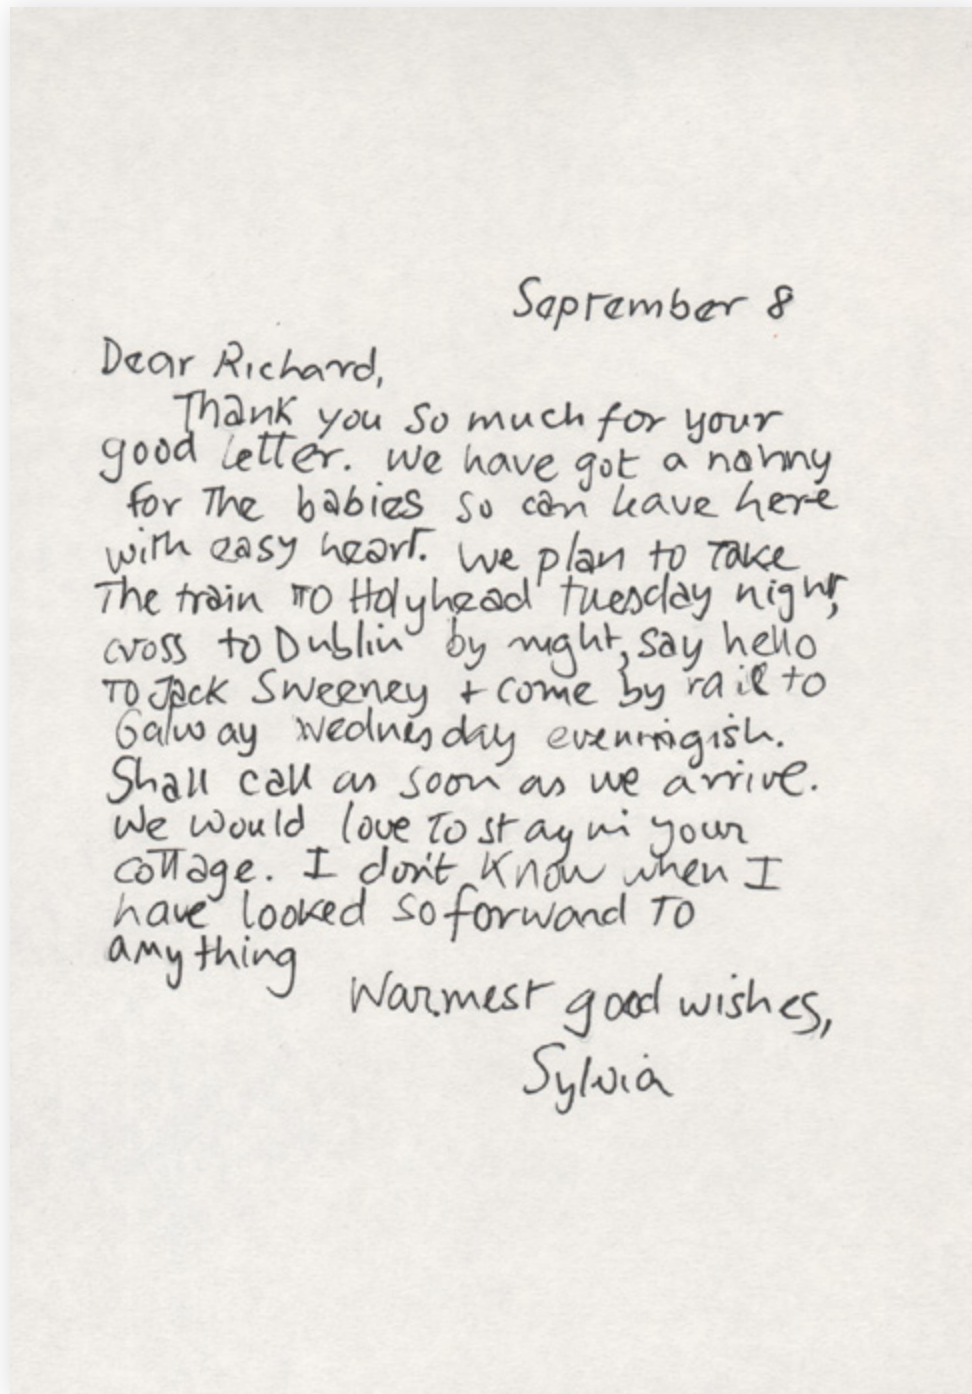 September 8
Dear Richard,
Thank you so much for your
good letter. We have got a nanny
for The babies so can leave here
with easy heart. We plan to Take
The train TO Holyhead tuesday night,
cross to Dublin by night, say hello
TO Jack Sweeney + come by rail to
Galway Wednesday eveningish.
Shall call as soon as we arrive.
We would love To stay in your
cottage. I don't know when I
have looked so forward TO
anything
Warmest good wishes,
Sylvia